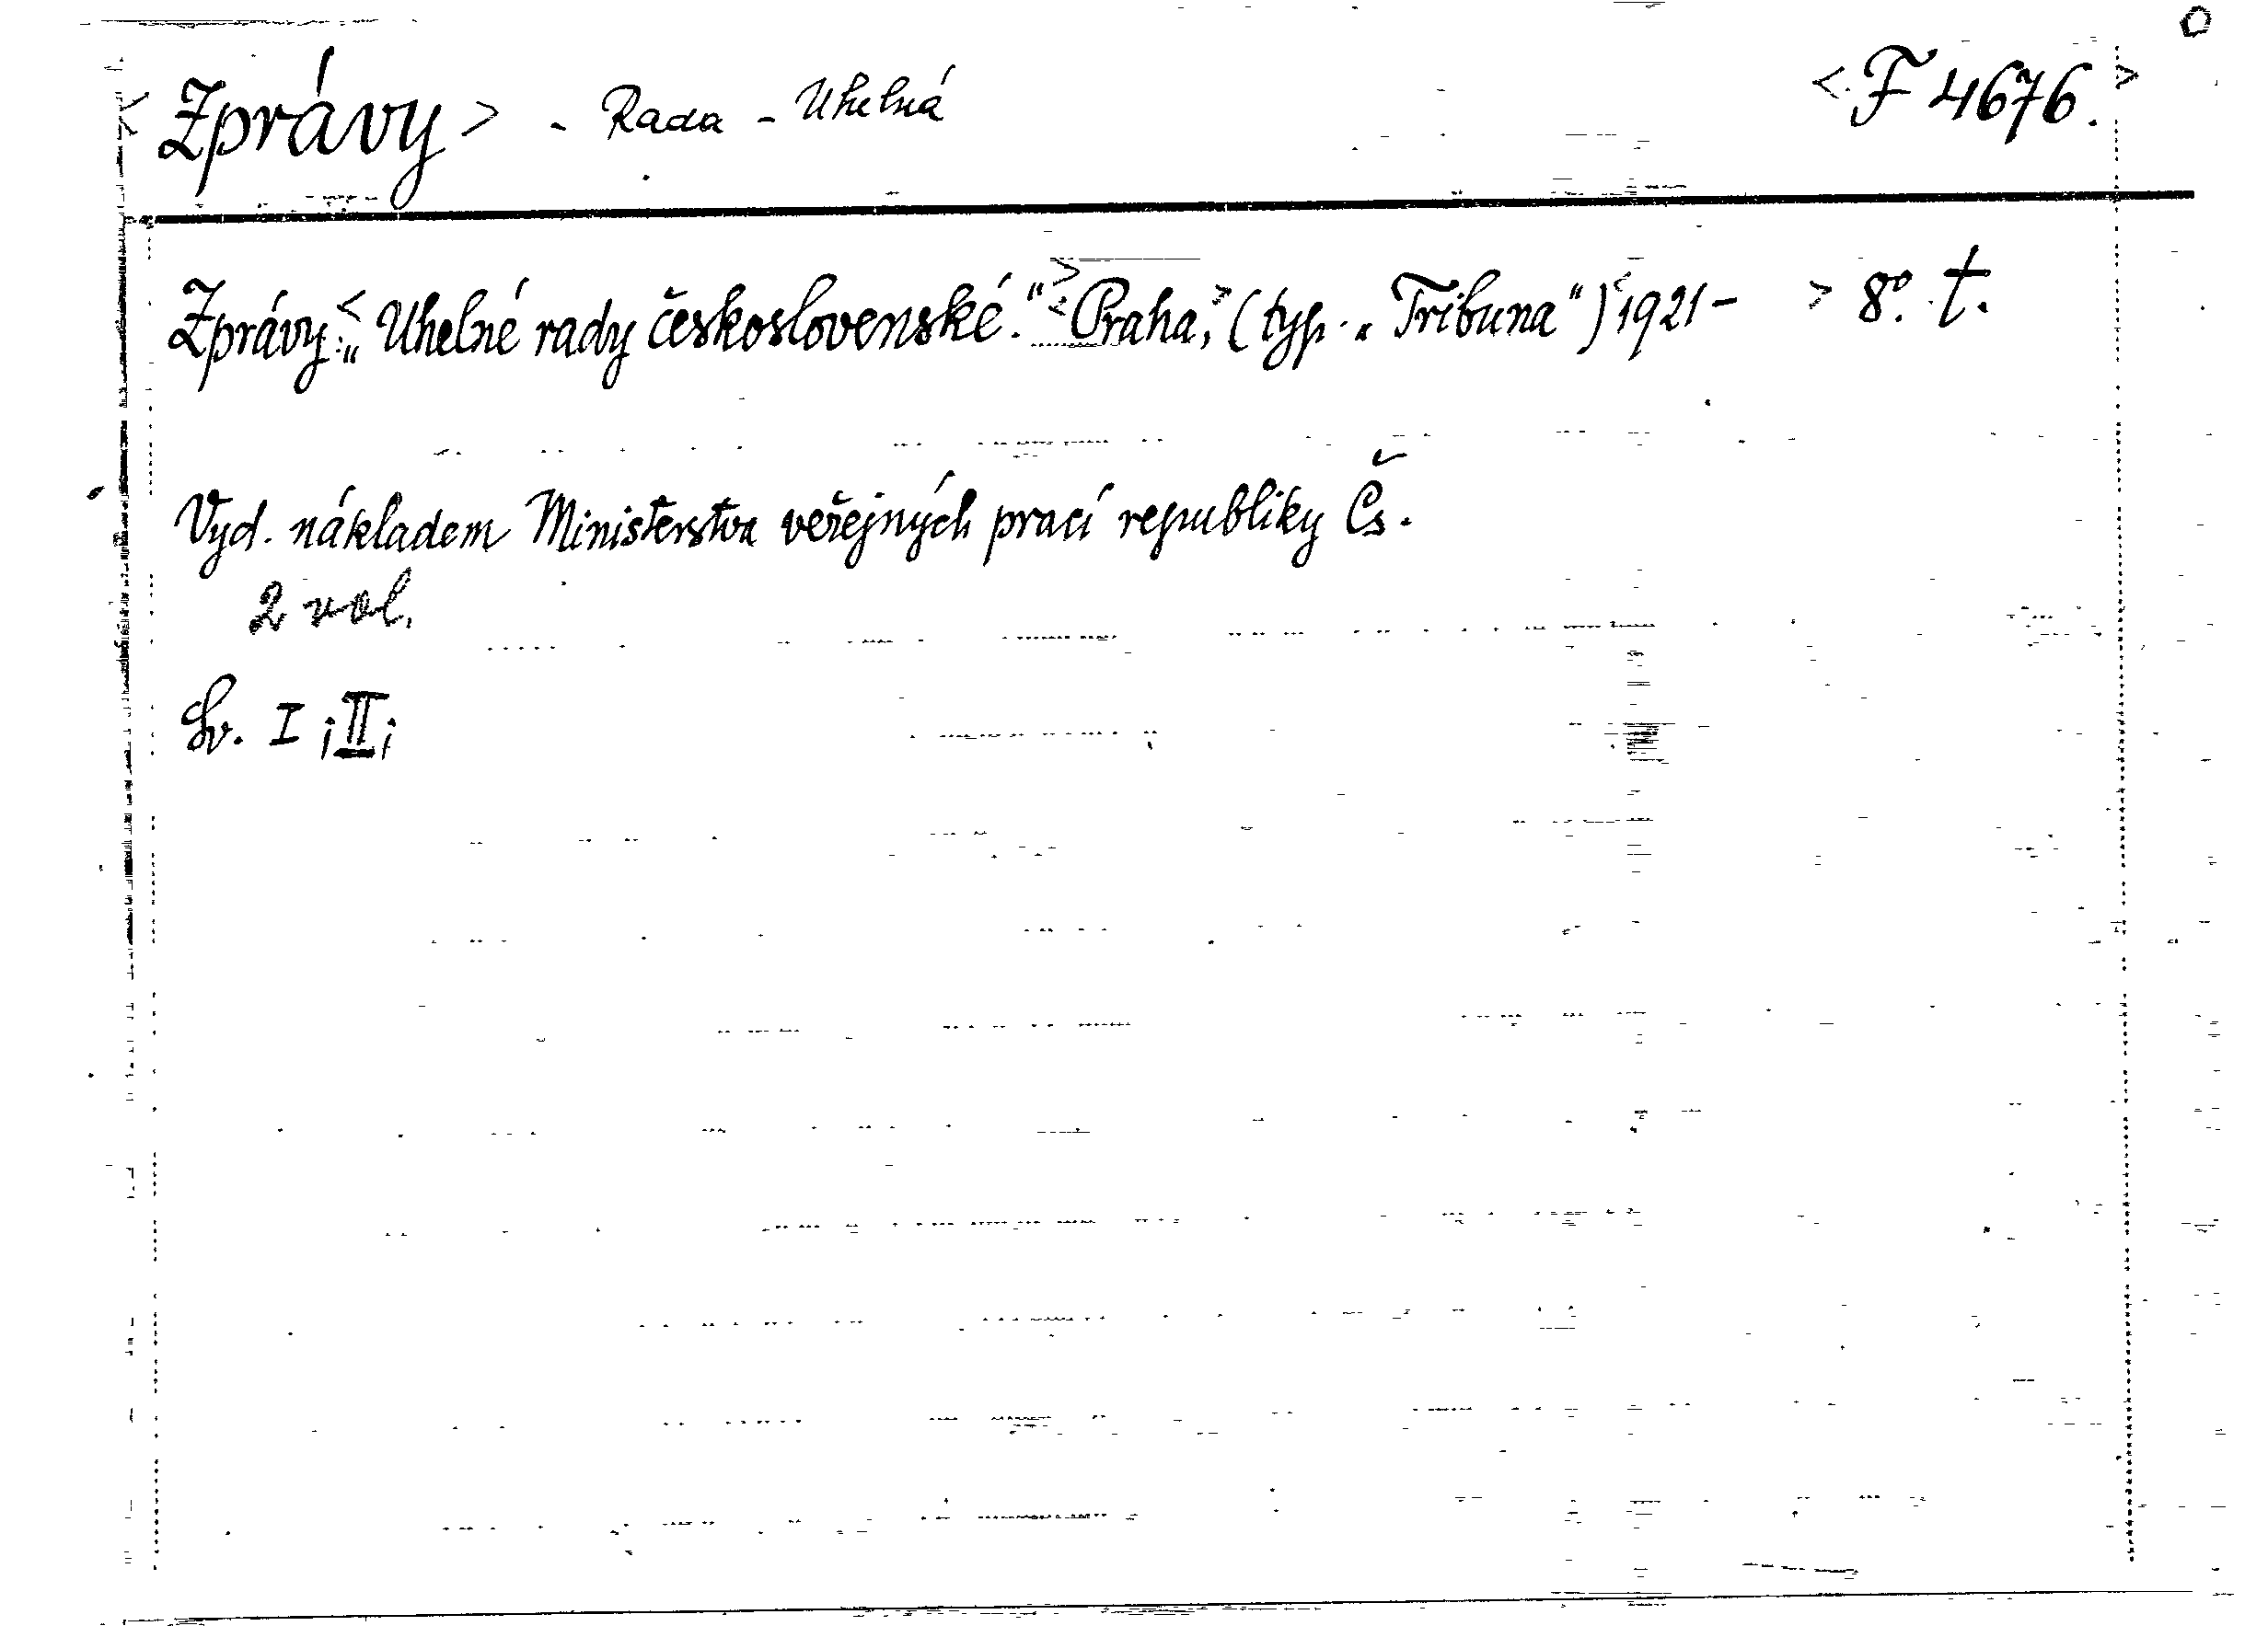 <Zprávy> - Rada - Uhelná <F 4676.>
Zprávy:<„Uhelné rady československé.“> <Praha,> (typ. „Tribuna“) <1921- > 8º. t.
Vyd. nákladem Ministerstva veřejných prací republiky Čs.
2 vol.
Sv. I ; II ;